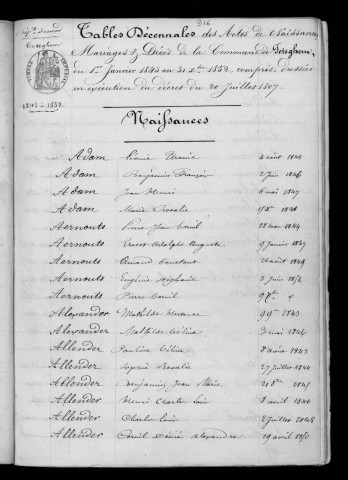 316
Tables Décennales des Actes de Naissances
Mariages & Décès de la Commune de Tereghem,
du 1er Janvier 1843 au 31 Xbre 1852, compris, dressées
en exécution du décret du 20 Juillet 1807.
Tereghem
1843 à 1852
Naissances
Adam Marie 4 août 1844
Adam Benjamin François 2 Juin 1846
Adam Jean Henri 6 mai 1847
Adam Marie Rosalie 1848
Aernouts Pierre Jean Camil
Aernouts Ernest Adolphe Auguste 9 Janvier 1849
Aernouts Amand Constant 26 août 1849
Aernouts Eugénie Stéphanie
Aernouts Pierre Camil
Alexander Mathilde 1843
Alexander Mathilde 3 mai 1846
Allender Pauline 1843
Allender Sophie Rosalie 27 Juillet 1844
Allender Benjamin Jean Marie 1845
Allender Henri Charles Louis 8 avril 1846
Allender Charles Louis 2 Juillet 1848
Allender Camil Désiré Alexandre 19 avril 1850